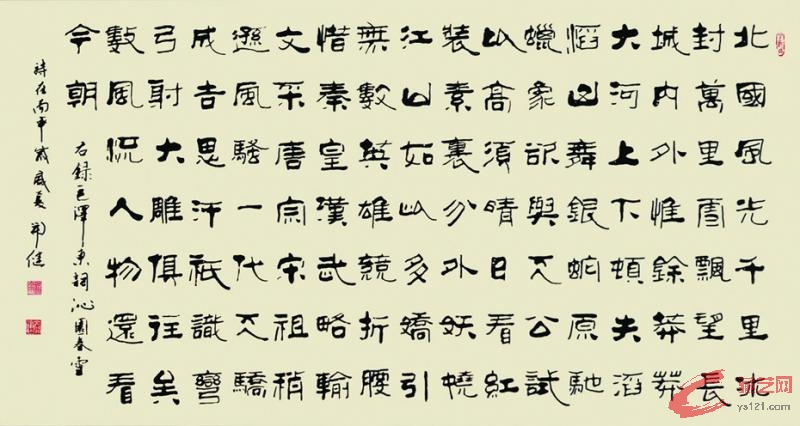 北國風光千里冰
封萬里雪飄望長
城内外惟餘莽莽
大河上下頓失滔
滔山舞銀蛇原馳
蠟象欲與天公試
比高須晴日看紅
裝素裹分外妖嬈
江山如此多嬌引
無數英雄競折腰
惜秦皇漢武略輸
文采唐宗宋祖稍
遜風騷一代天驕
成吉思汗祇識彎
弓射大雕俱往矣
數風流人物還看
今朝
右録毛澤東詞沁園春雪
時在丙申歲盛夏健
艺网
ys121.com